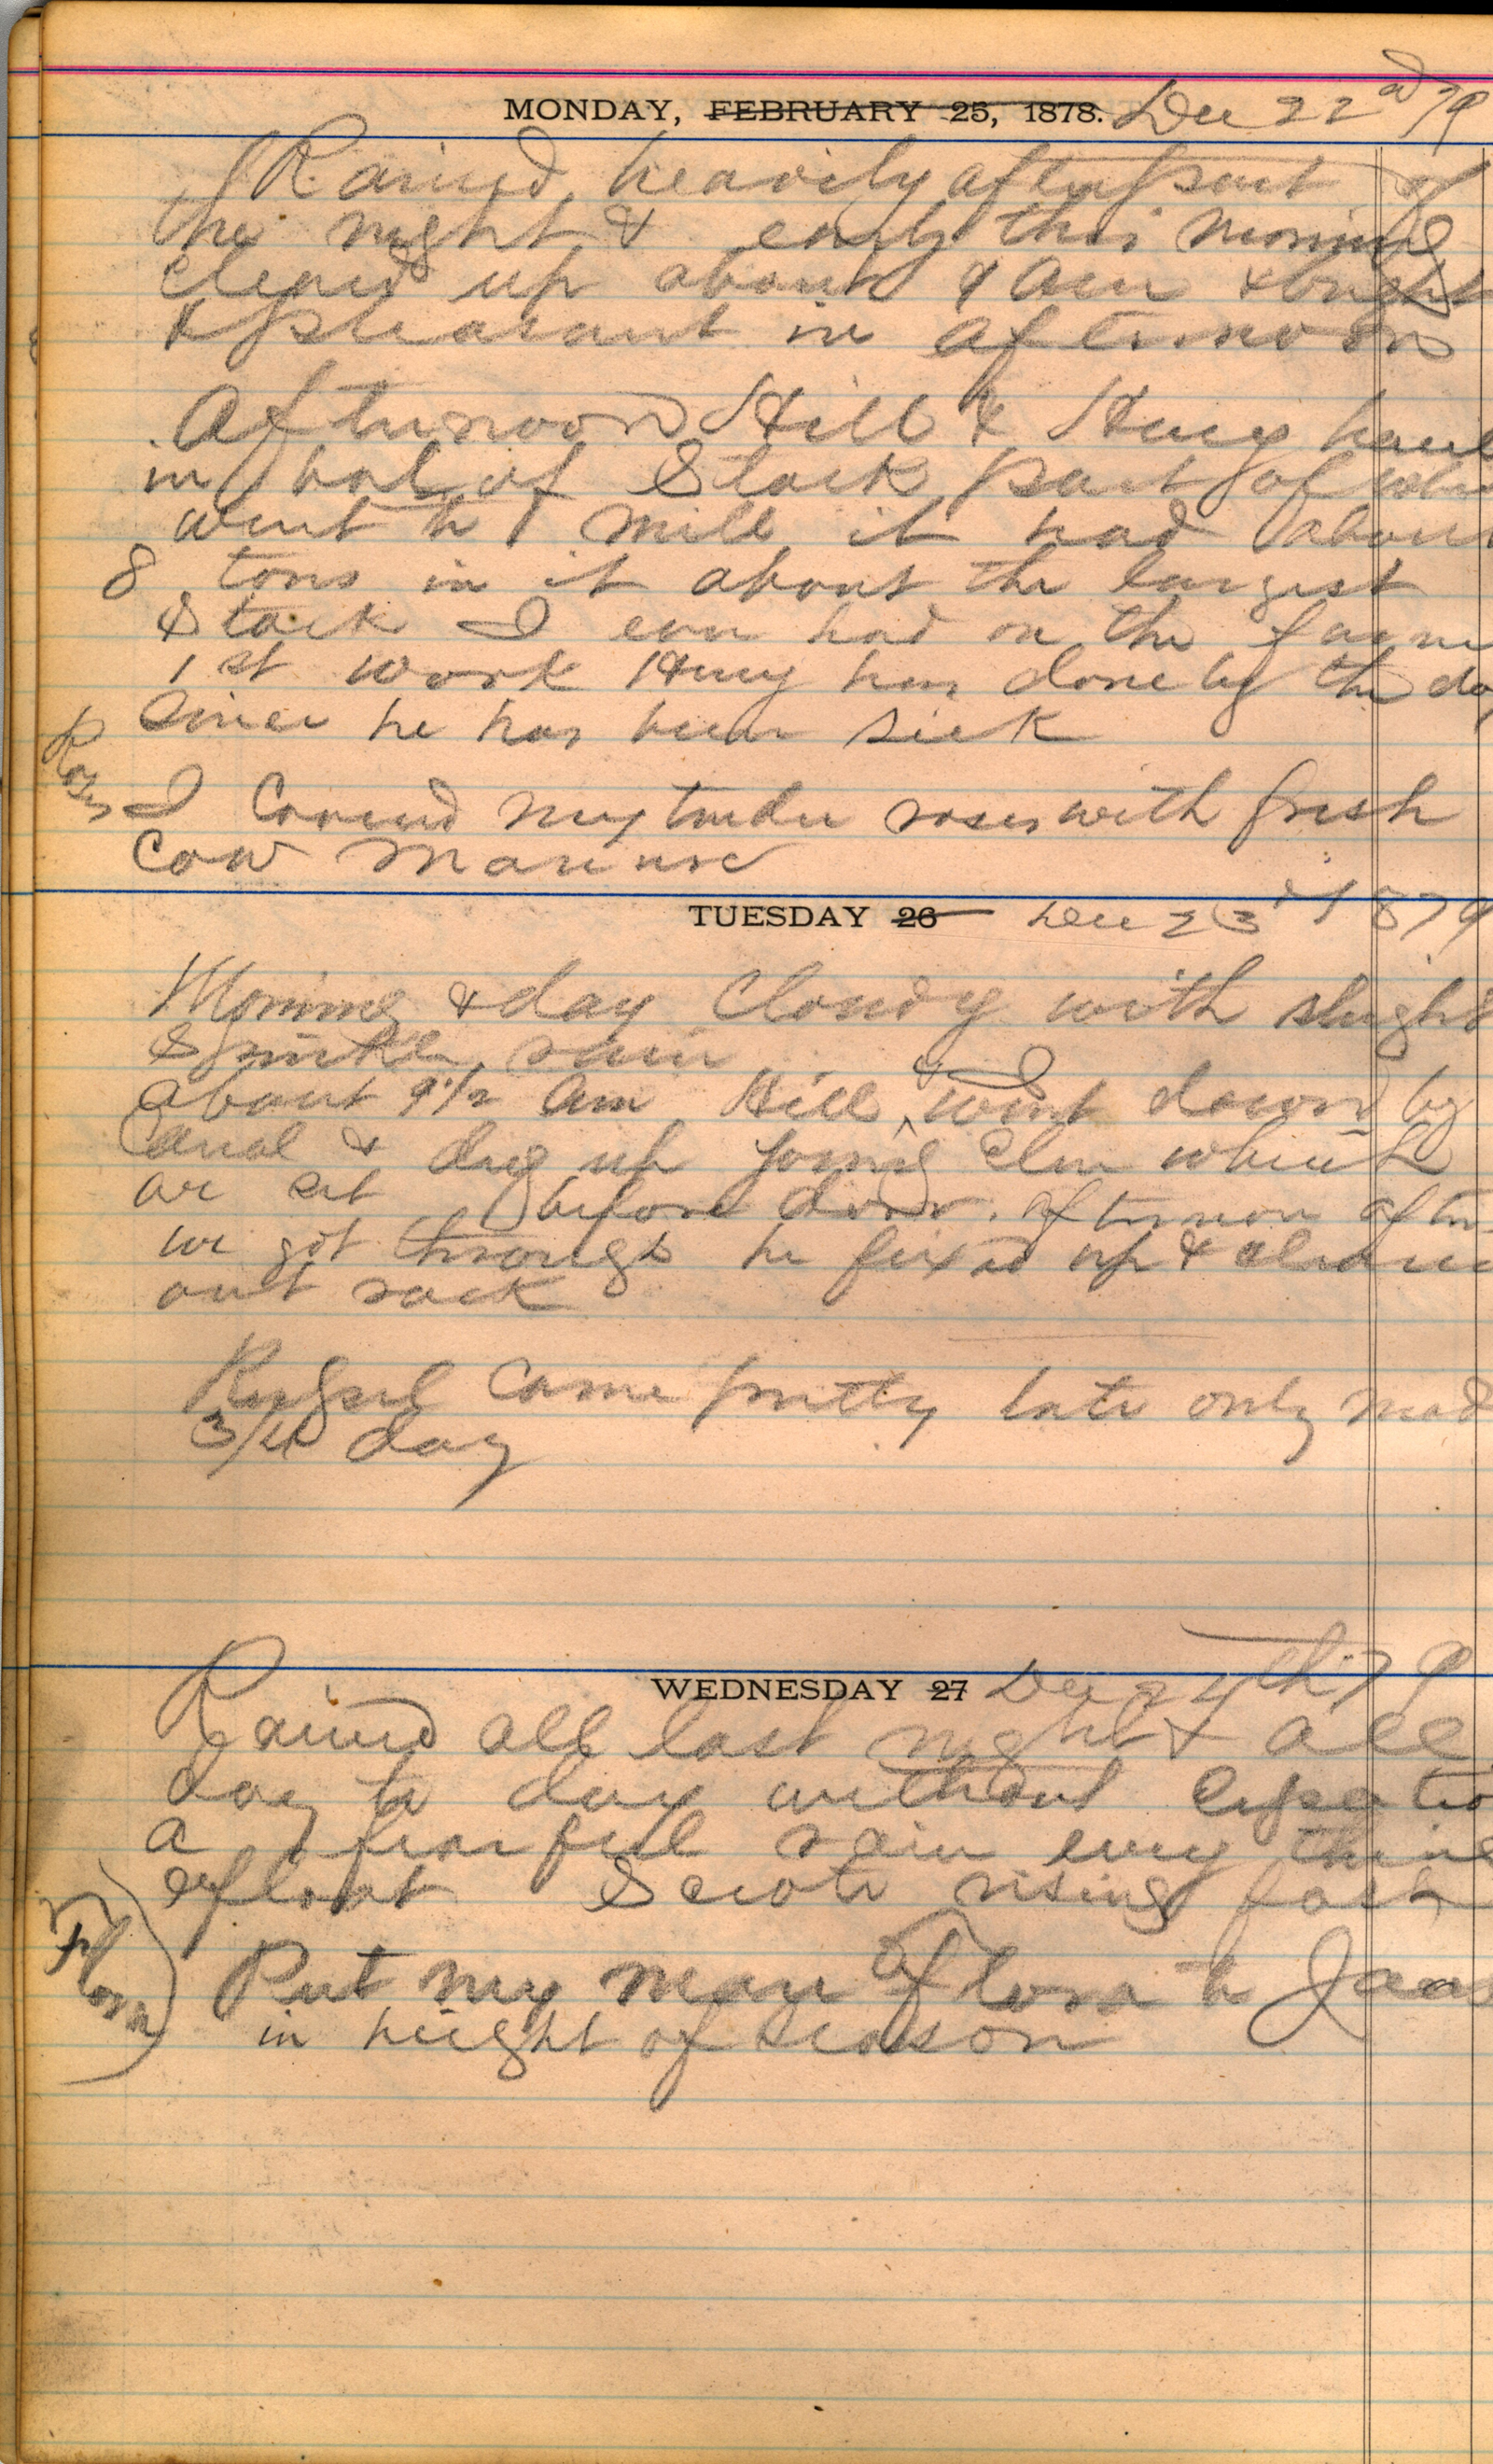 MONDAY, FEBRUARY 25, 1878. Dec 22nd 79
Rained heavily after part of
the night & early this morning
cleard up about 9 am & bright
& pleasant in afternoon
Afternoon Hill & Huey haul
in bal of Stack part of whi
went to mill it had about
8 tons in it about the largest
Stack I ever had on the farm
1st work Huey has done by the da
Since he has been sick
Roses
I Covered my tender roses with fresh
Cow Manure
TUESDAY 26 Dec 23d 1879
Morning & day Cloudy with slight
Sprinkle rain
about 9 1/2 am Hill & I went down by
Canal & dug up young Elm which
we set before door. afternoon after
we got through he fixed up & cleaned
out rack
Came pretty late only mad
3/4 day
WEDNESDAY 27 Dec 24th 79
Rained all last night & all
day to day without
a fearful rain every thing
afloat Scioto rising fast
Flora
Put my mare Flora to
in height of season